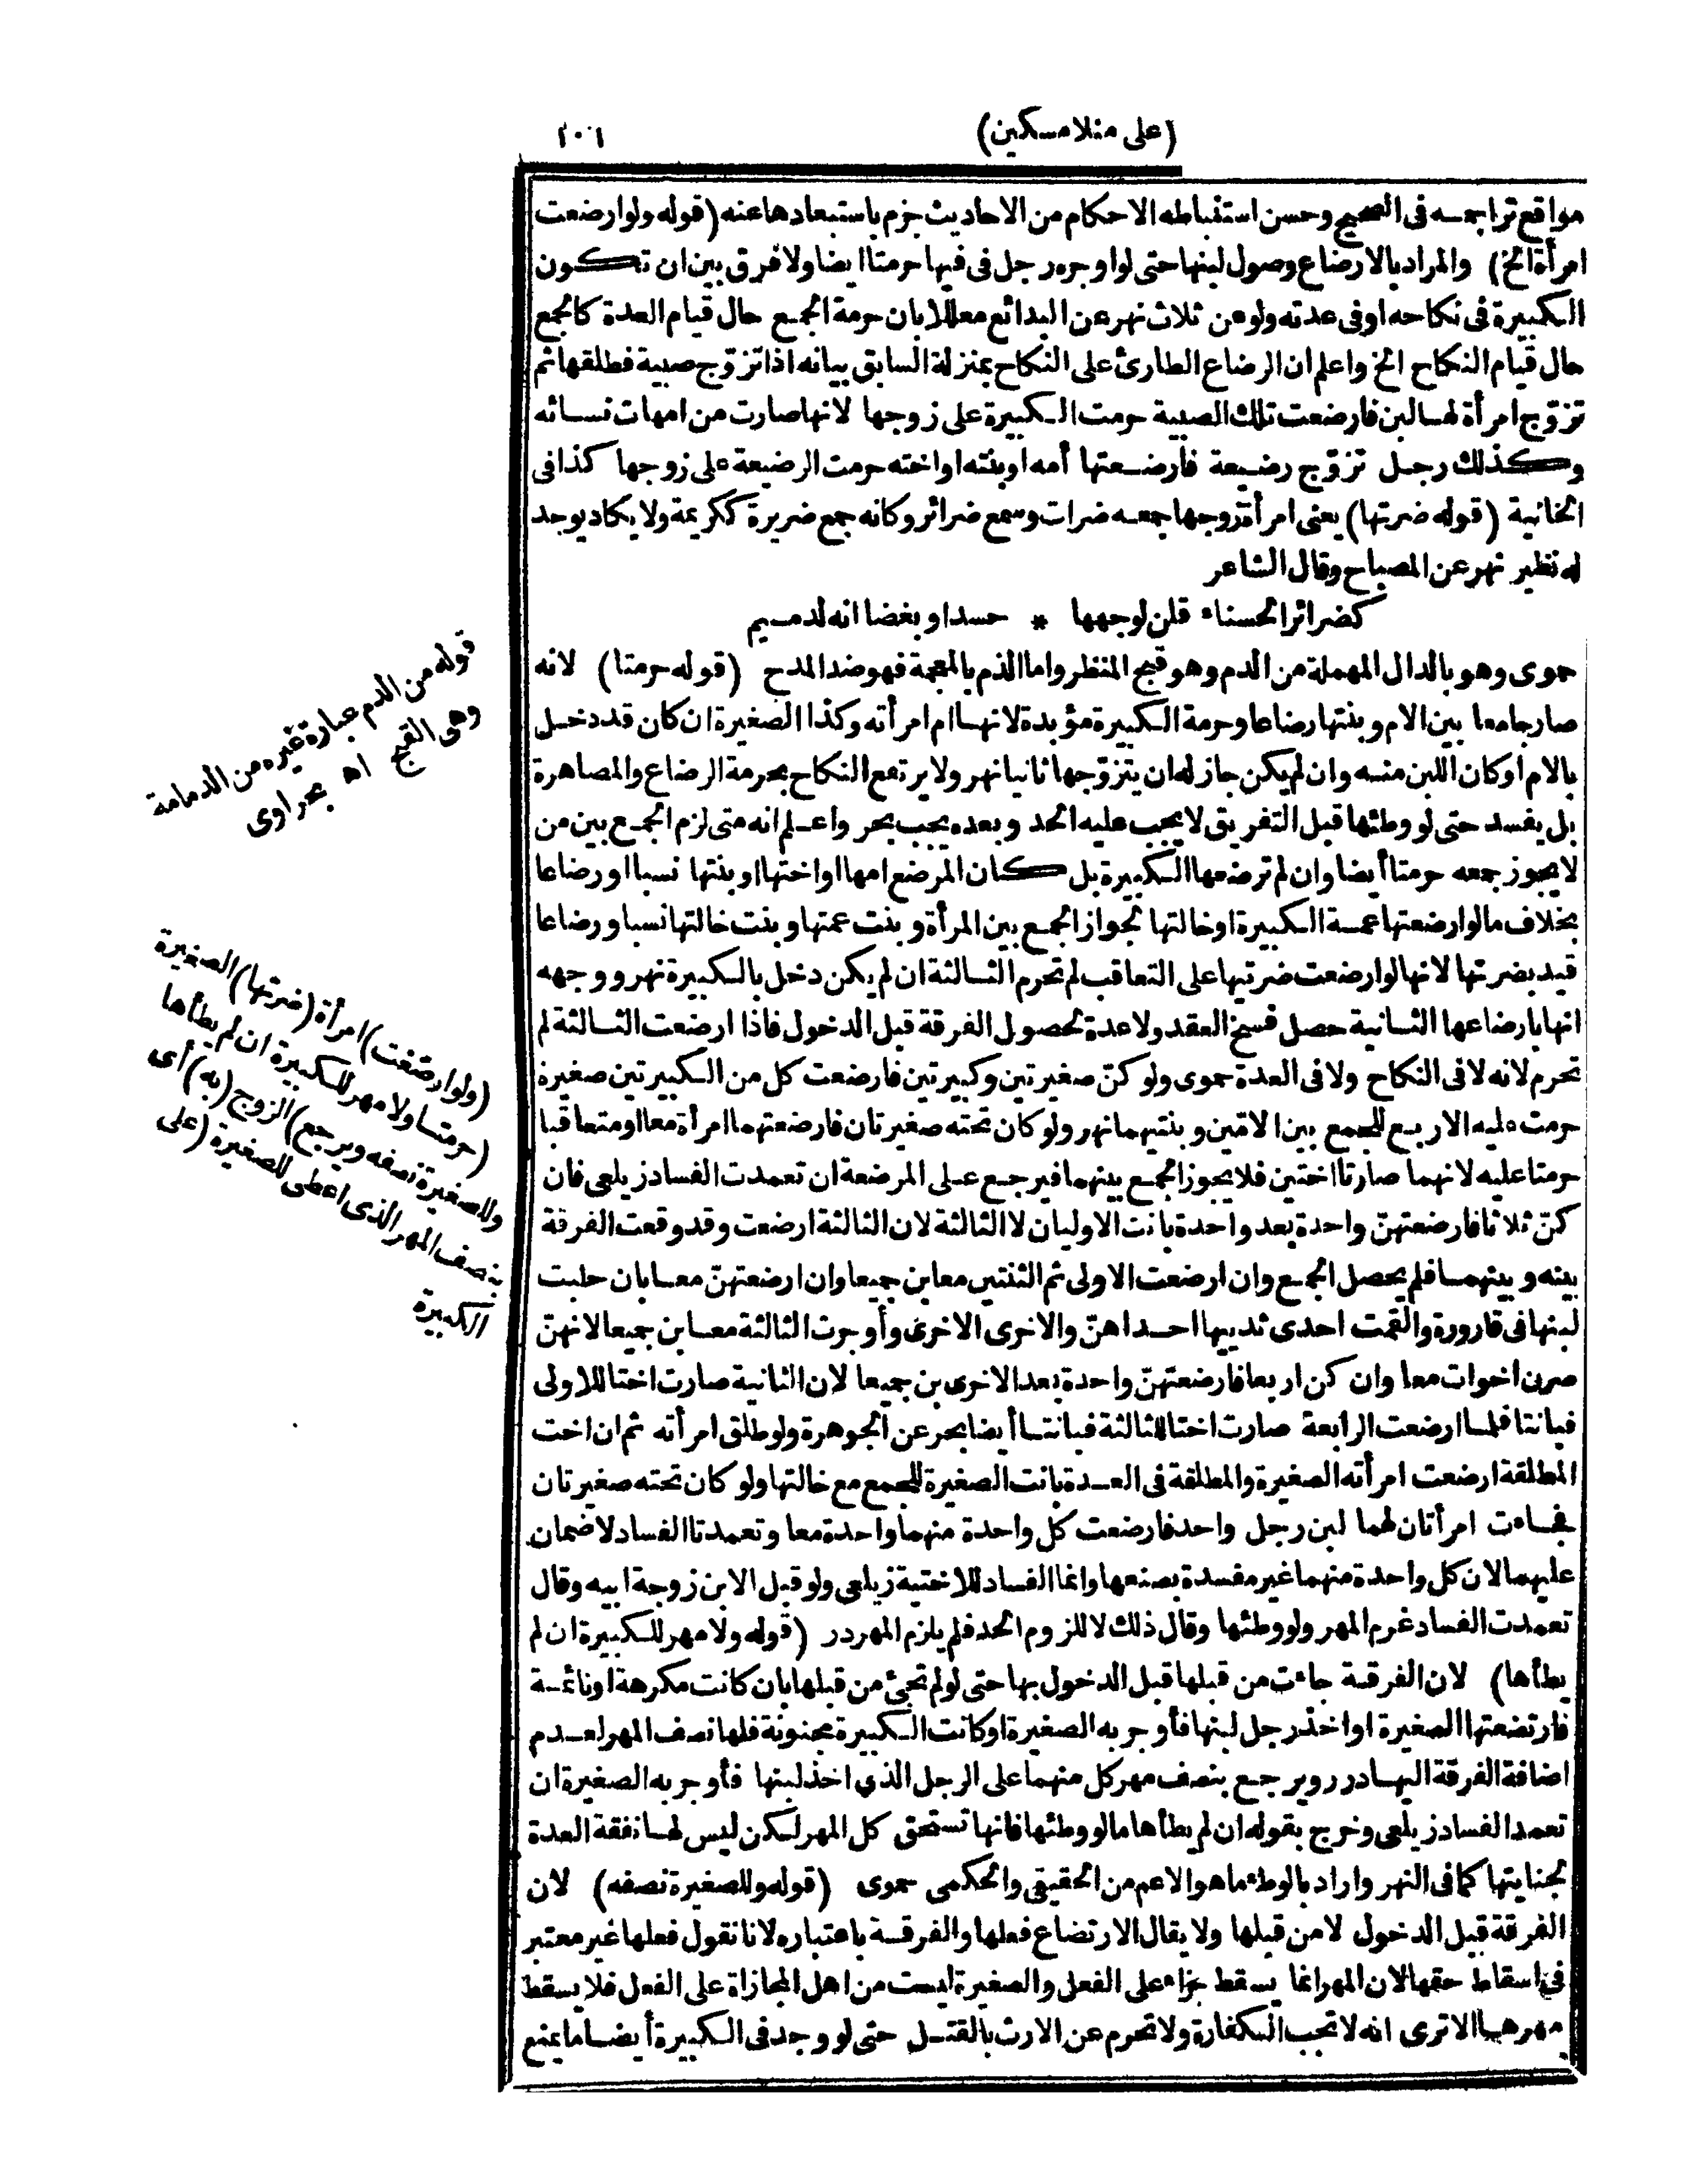 (على منلامسكين) ١٠١
مواقع تراجمه فى الصحيح وحسن استنباطه الاحكام من الاحاديث جزم باستبعادها عنه (قوله ولو ارضعت
امرأة الخ) والمراد بالارضاع وصول لبنها حتى لو اوجره رجل فى فيها حرمتا ايضا ولا فرق بين ان تكون
الكبيرة فى نكاحه او فى عدته ولو عن ثلاث نهر عن البدائع معللا بان حرمة الجمع حال قيام العدة كالجمع
حال قيام النكاح الخ واعلم ان الرضاع الطارئ على النكاح بمنزلة السابق بيانه اذا تزوّج صبية فطلقها ثم
تزوّج امرأة لها لبن فارضعت تلك الصبية حرمت الكبيرة على زوجها لانها صارت من امهات نسائه
وكذلك رجل تزوّج رضيعة فارضعتها أمه او بنته او اخته حرمت الرضيعة على زوجها كذا فى
الخانية (قوله ضرتها) يعنى امرأة زوجها جمعه ضرات وسمع ضرائر وكانه جمع ضريرة ككريمة ولا يكاد يوجد
له نظير نهر عن المصباح وقال الشاعر
كضرائر الحسناء قلن لوجهها * حسدا وبغضا انه لدميم
حموى وهو بالدال المهملة من الدم وهو قبح المنظر واما الذم بالمعجمة فهو ضد المدح (قوله حرمتا) لانه
صار جامعا بين الام وبنتها رضاعا وحرمة الكبيرة مؤبدة لانها ام امرأته وكذا الصغيرة ان كان قد دخل
بالام او كان اللبن منه وان لم يكن جاز له ان يتزوّجها ثانيا نهر ولا يرتفع النكاح بحرمة الرضاع والمصاهرة
بل يفسد حتى لو وطئها قبل التفريق لا يجب عليه الحد وبعده يجب بحر واعلم انه متى لزم الجمع بين من
لا يجوز جمعه حرمتا أيضا وان لم ترضعها الكبيرة بل كان المرضع امها او اختها او بنتها نسبا او رضاعا
بخلاف ما لو ارضعتها عمة الكبيرة او خالتها لجواز الجمع بين المرأة وبنت عمتها وبنت خالتها نسبا ورضاعا
قيد بضرتها لانها لو ارضعت ضرتيها على التعاقب لم تحرم الثالثة ان لم يكن دخل بالكبيرة نهر ووجهه
انها بارضاعها الثانية حصل فسخ العقد ولا عدة لحصول الفرقة قبل الدخول فاذا ارضعت الثالثة لم
تحرم لانه لا فى النكاح ولا فى العدة حموى ولو كنّ صغيرتين وكبيرتين فارضعت كل من الكبيرتين صغيرة
حرمت عليه الاربع للجمع بين الامّين وبنتيهما نهر ولو كان تحته صغيرتان فارضعتهما امرأة معا او متعاقبا
حرمتا عليه لانهما صارتا اختين فلا يجوز الجمع بينهما فيرجع على المرضعة ان تعمدت الفساد زيلعى فان
كنّ ثلاثا فارضعتهنّ واحدة بعد واحدة بانت الاوليان لا الثالثة لان الثالثة ارضعت وقد وقعت الفرقة
بينه وبينهما فلم يحصل الجمع وان ارضعت الاولى ثم الثنتين معا بن جميعا وان ارضعتهنّ معا بان حلبت
لبنها فى قارورة والقمت احدى ثدييها احداهنّ والاخرى الاخرى وأوجرت الثالثة معا بن جميعا لانهنّ
صرن اخوات معا وان كن اربعا فارضعتهنّ واحدة بعد الاخرى بن جميعا لان الثانية صارت اختا للاولى
فبانتا فلما ارضعت الرابعة صارت اختا للثالثة فبانتا أيضا بحر عن الجوهرة ولو طلق امرأته ثم ان اخت
المطلقة ارضعت امرأته الصغيرة والمطلقة فى العدة بانت الصغيرة للجمع مع خالتها ولو كان تحته صغيرتان
فجاءت امرأتان لهما لبن رجل واحد فارضعت كل واحدة منهما واحدة معا وتعمدتا الفساد لا ضمان
عليهما لان كل واحدة منهما غير مفسدة بصنعها وانما الفساد للاختية زيلعى ولو قبل الابن زوجة ابيه وقال
تعمدت الفساد غرم المهر ولو وطئها وقال ذلك لا للزوم الحد فلم يلزم المهر درر (قوله ولا مهر للكبيرة ان لم
يطأها) لان الفرقة جاءت من قبلها قبل الدخول بها حتى لو لم تجئ من قبلها بان كانت مكرهة او نائمة
فارتضعتها الصغيرة او اخذ رجل لبنها فأوجر به الصغيرة او كانت الكبيرة مجنونة فلها نصف المهر لعدم
اضافة الفرقة اليها درر ويرجع بنصف مهر كل منهما على الرجل الذى اخذ لبنها فأوجر به الصغيرة ان
تعمد الفساد زيلعى وخرج بقوله ان لم يطأها ما لو وطئها فانها تستحق كل المهر لكن ليس لها نفقة العدة
لجنايتها كما فى النهر واراد بالوطء ما هو الاعم من الحقيقى والحكمى حموى (قوله وللصغيرة نصفه) لان
الفرقة قبل الدخول لا من قبلها ولا يقال الارتضاع فعلها والفرقة باعتباره لانا نقول فعلها غير معتبر
فى اسقاط حقها لان المهر انما يسقط جزاء على الفعل والصغيرة ليست من اهل المجازاة على الفعل فلا يسقط
مهرها الا ترى انه لا تجب الكفارة ولا تحرم عن الارث بالقتل حتى لو وجد فى الكبيرة أيضا ما يمنع
قوله من الدم عبارة غيره من الدمامة
وهى القبح اه بحراوى
(ولو ارضعت) امرأة (ضرتها) الصغيرة
(حرمتا ولا مهر للكبيرة ان لم يطأها
وللصغيرة نصفه ويرجع) الزوج (به) أى
بنصف المهر الذى اعطى للصغيرة (على
الكبيرة